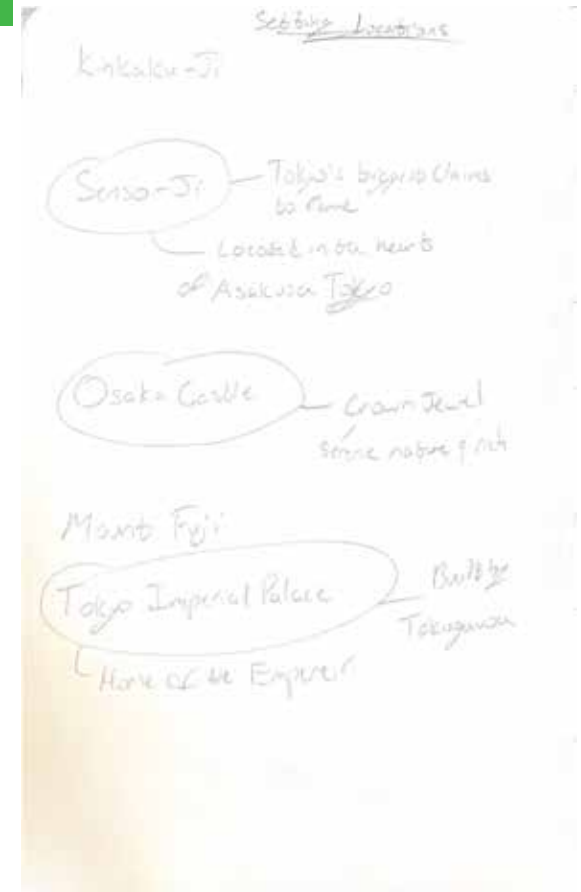 Setting Locations
Kinkaku-Ji
Senso-Ji
Tokyo's biggest Claims
to Fame
Located in the heart
of Asakusa Tokyo
Osaka Castle
Crown Jewel
Serene nature & rich
Mount Fuji
Tokyo Imperial Palace
Built by
Home of the Emperor